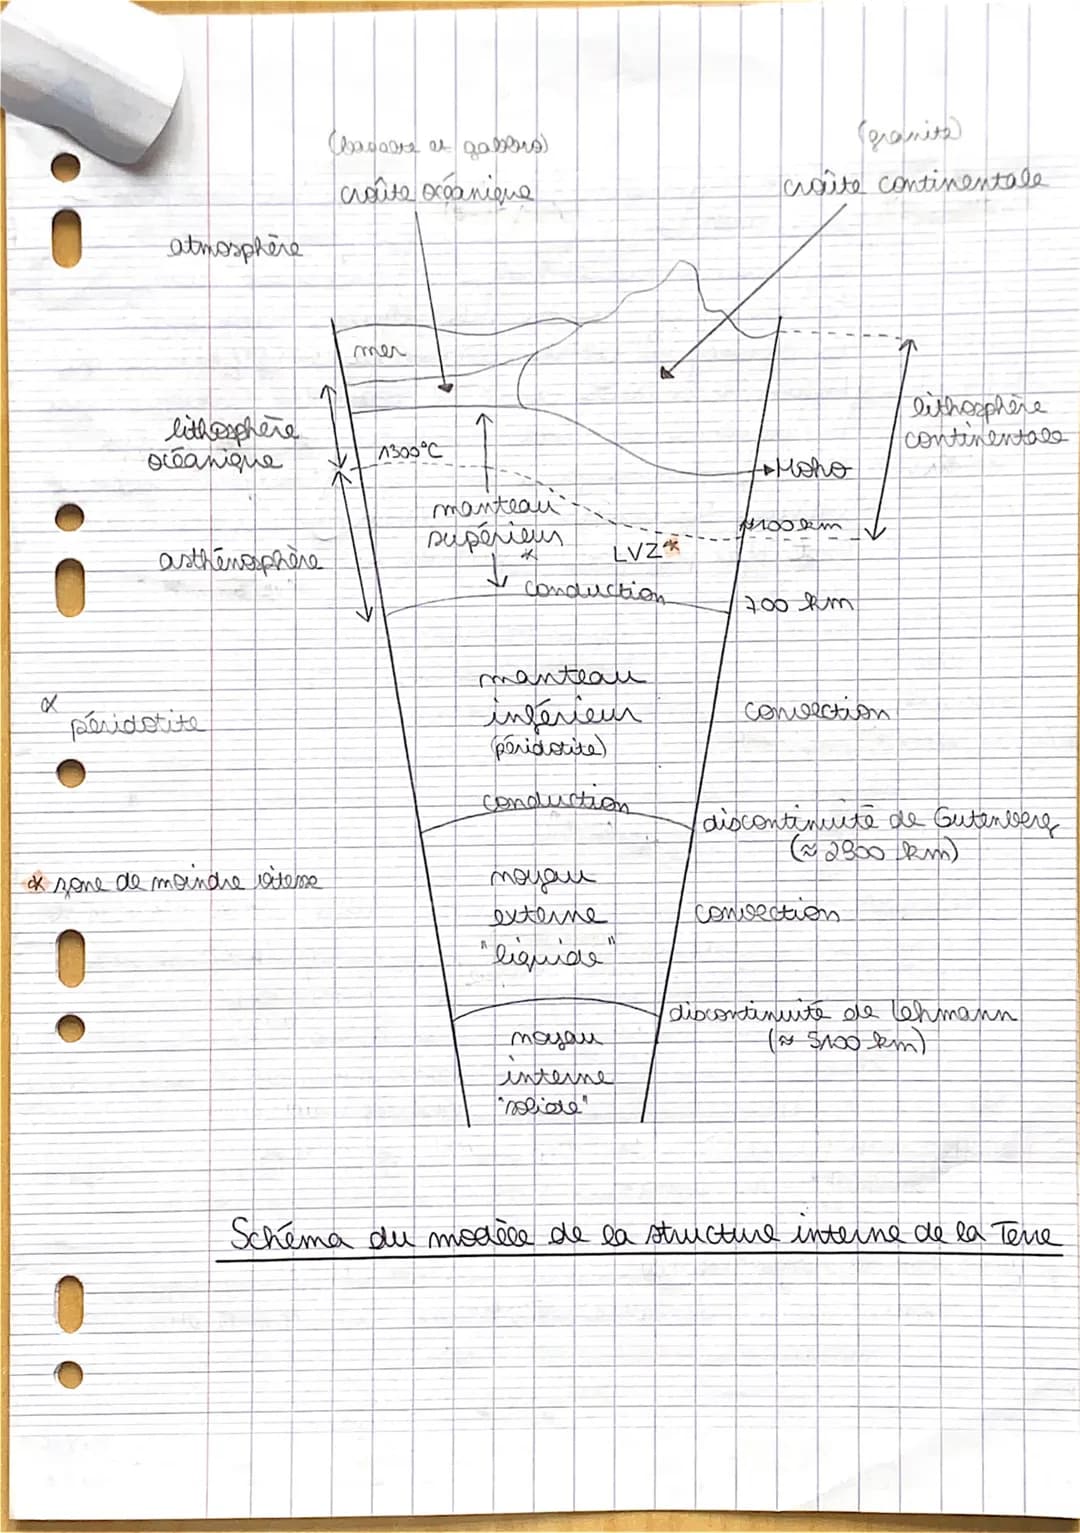 (basalte et gabbro)
croûte océanique
(granite)
croûte continentale
atmosphère
mer
lithosphère
océanique
1300°C
lithosphère
continentale
Moho
manteau
supérieur
*
LVZ*
≈100 km
asthénosphère
conduction
700 km
manteau
inférieur
(péridotite)
convection
* péridotite
conduction
discontinuité de Gutenberg
(≈ 2900 km)
* zone de moindre vitesse
noyau
externe
"liquide"
convection
discontinuité de Lehmann
(≈ 5100 km)
noyau
interne
"solide"
Schéma du modèle de la structure interne de la Terre